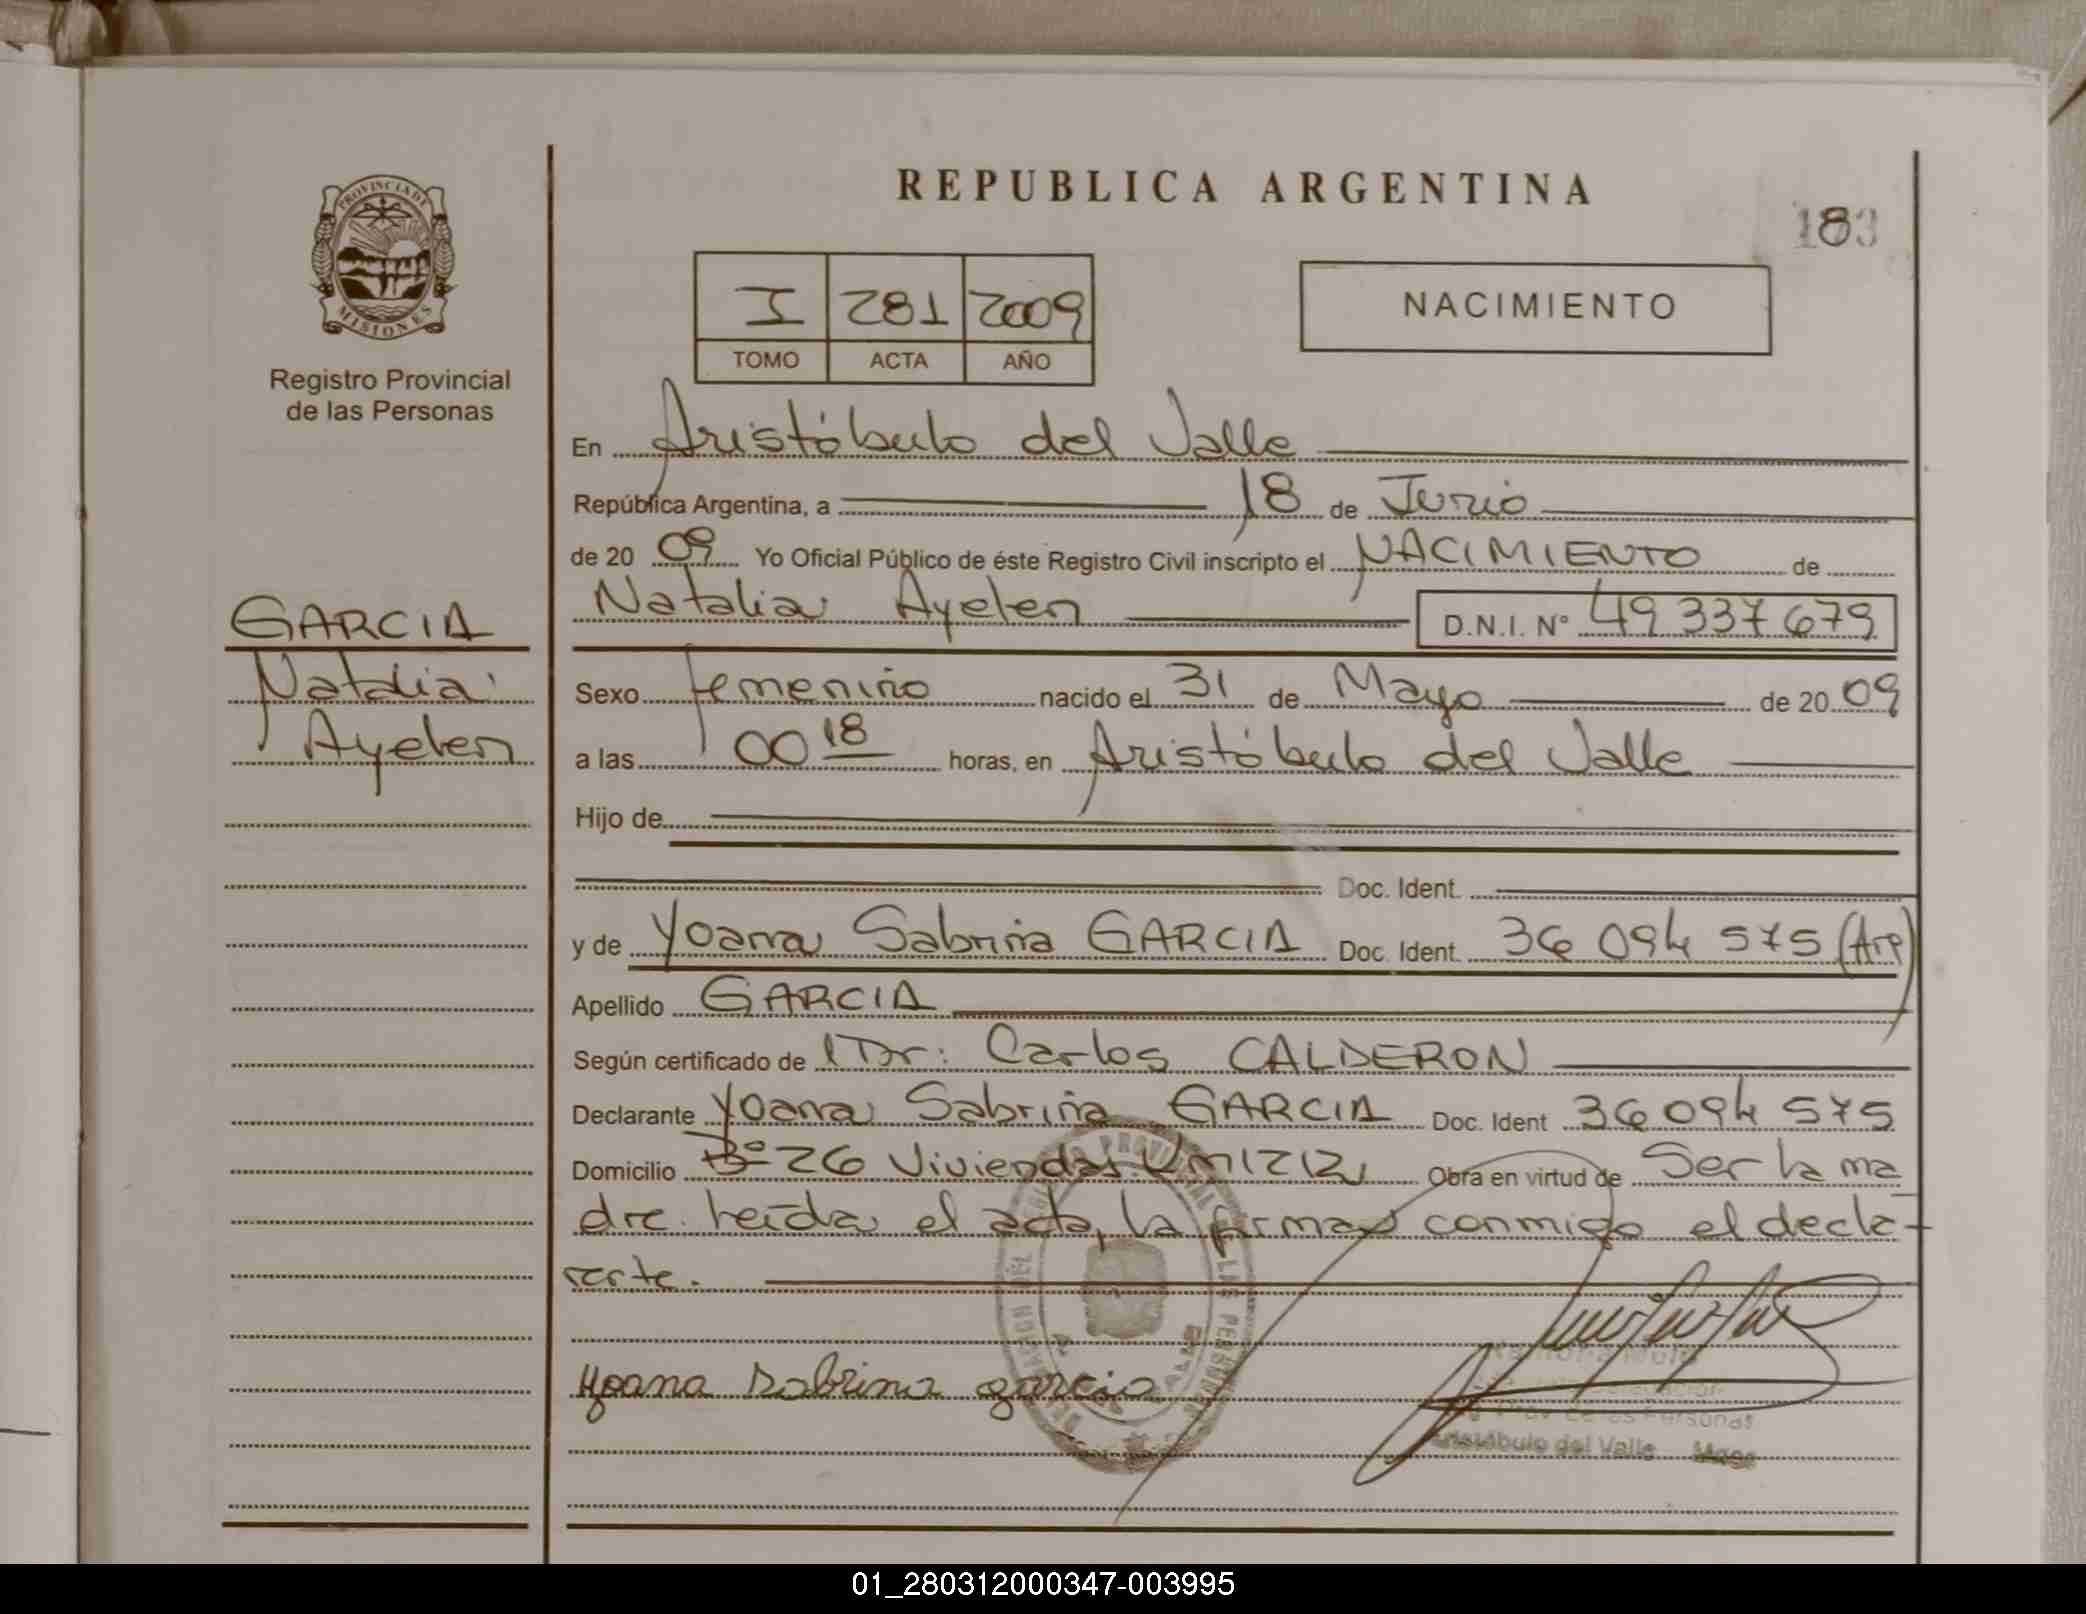 REPUBLICA ARGENTINA
183
PROVINCIA DE
MISIONES
Registro Provincial
de las Personas
I 281 2009
TOMO ACTA AÑO
NACIMIENTO
En Aristóbulo del Valle
República Argentina, a 18 de Junio
de 20 09 Yo Oficial Público de éste Registro Civil inscripto el NACIMIENTO de
Natalia Ayelen D.N.I. N° 49 337 679
GARCIA
Natalia
Ayelen
Sexo femenino nacido el 31 de Mayo de 20 09
a las 00 18 horas, en Aristóbulo del Valle
Hijo de
Doc. Ident.
y de Yoana Sabrina GARCIA Doc. Ident. 36 094 575 (Arg)
Apellido GARCIA
Según certificado de Dr: Carlos CALDERON
Declarante Yoana Sabrina GARCIA Doc. Ident 36094 575
Domicilio B° 26 Viviendas Km 1212 Obra en virtud de Ser la ma
dre. Leída el acta, la firma conmigo el decla-
rante.
Yoana Sabrina garcia
Prov. de las Personas
Aristóbulo del Valle Mnes
01_280312000347-003995